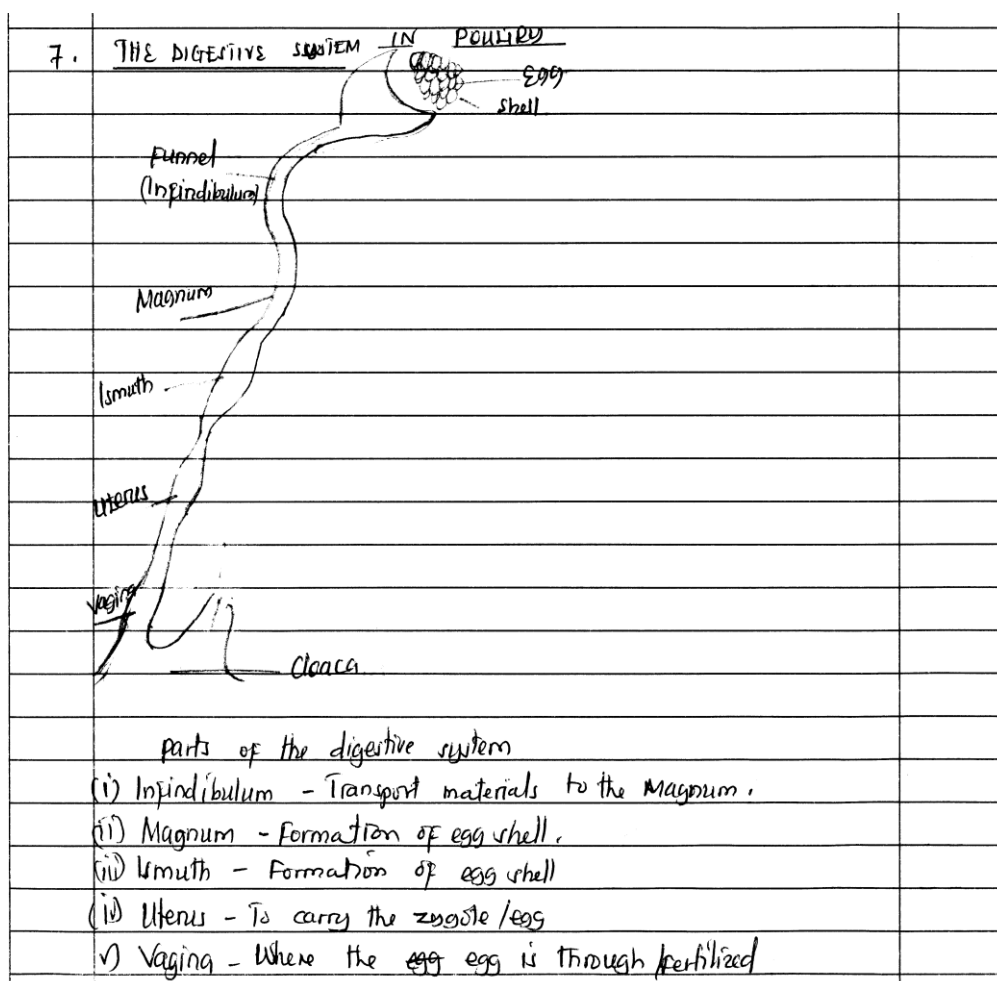 7. THE DIGESTIVE SYSTEM IN POULTRY
Egg
Shell
Funnel
(Infindibulum)
Magnum
Ismuth
Uterus
Vagina
Cloaca
parts of the digestive system
(i) Infindibulum - Transport materials to the Magnum.
(ii) Magnum - Formation of egg shell.
(iii) Ismuth - Formation of egg shell
(iv) Uterus - To carry the zygote/egg
v) Vaging - Where the egg egg is through fertilized